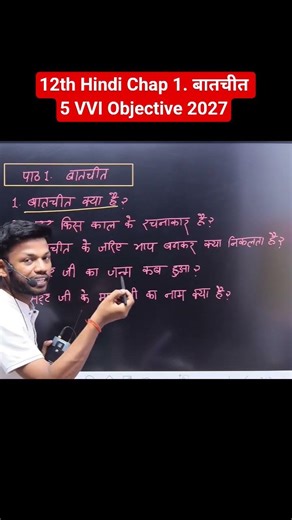 12th Hindi Chap 1. बातचीत
5 VVI Objective 2027
पाठ 1. बातचीत
1. बातचीत क्या है?
किस काल के रचनाकार है?
के जरिए भाप बनकर क्या निकलता है?
जी का जन्म कब हुआ?
जी के का नाम क्या है?